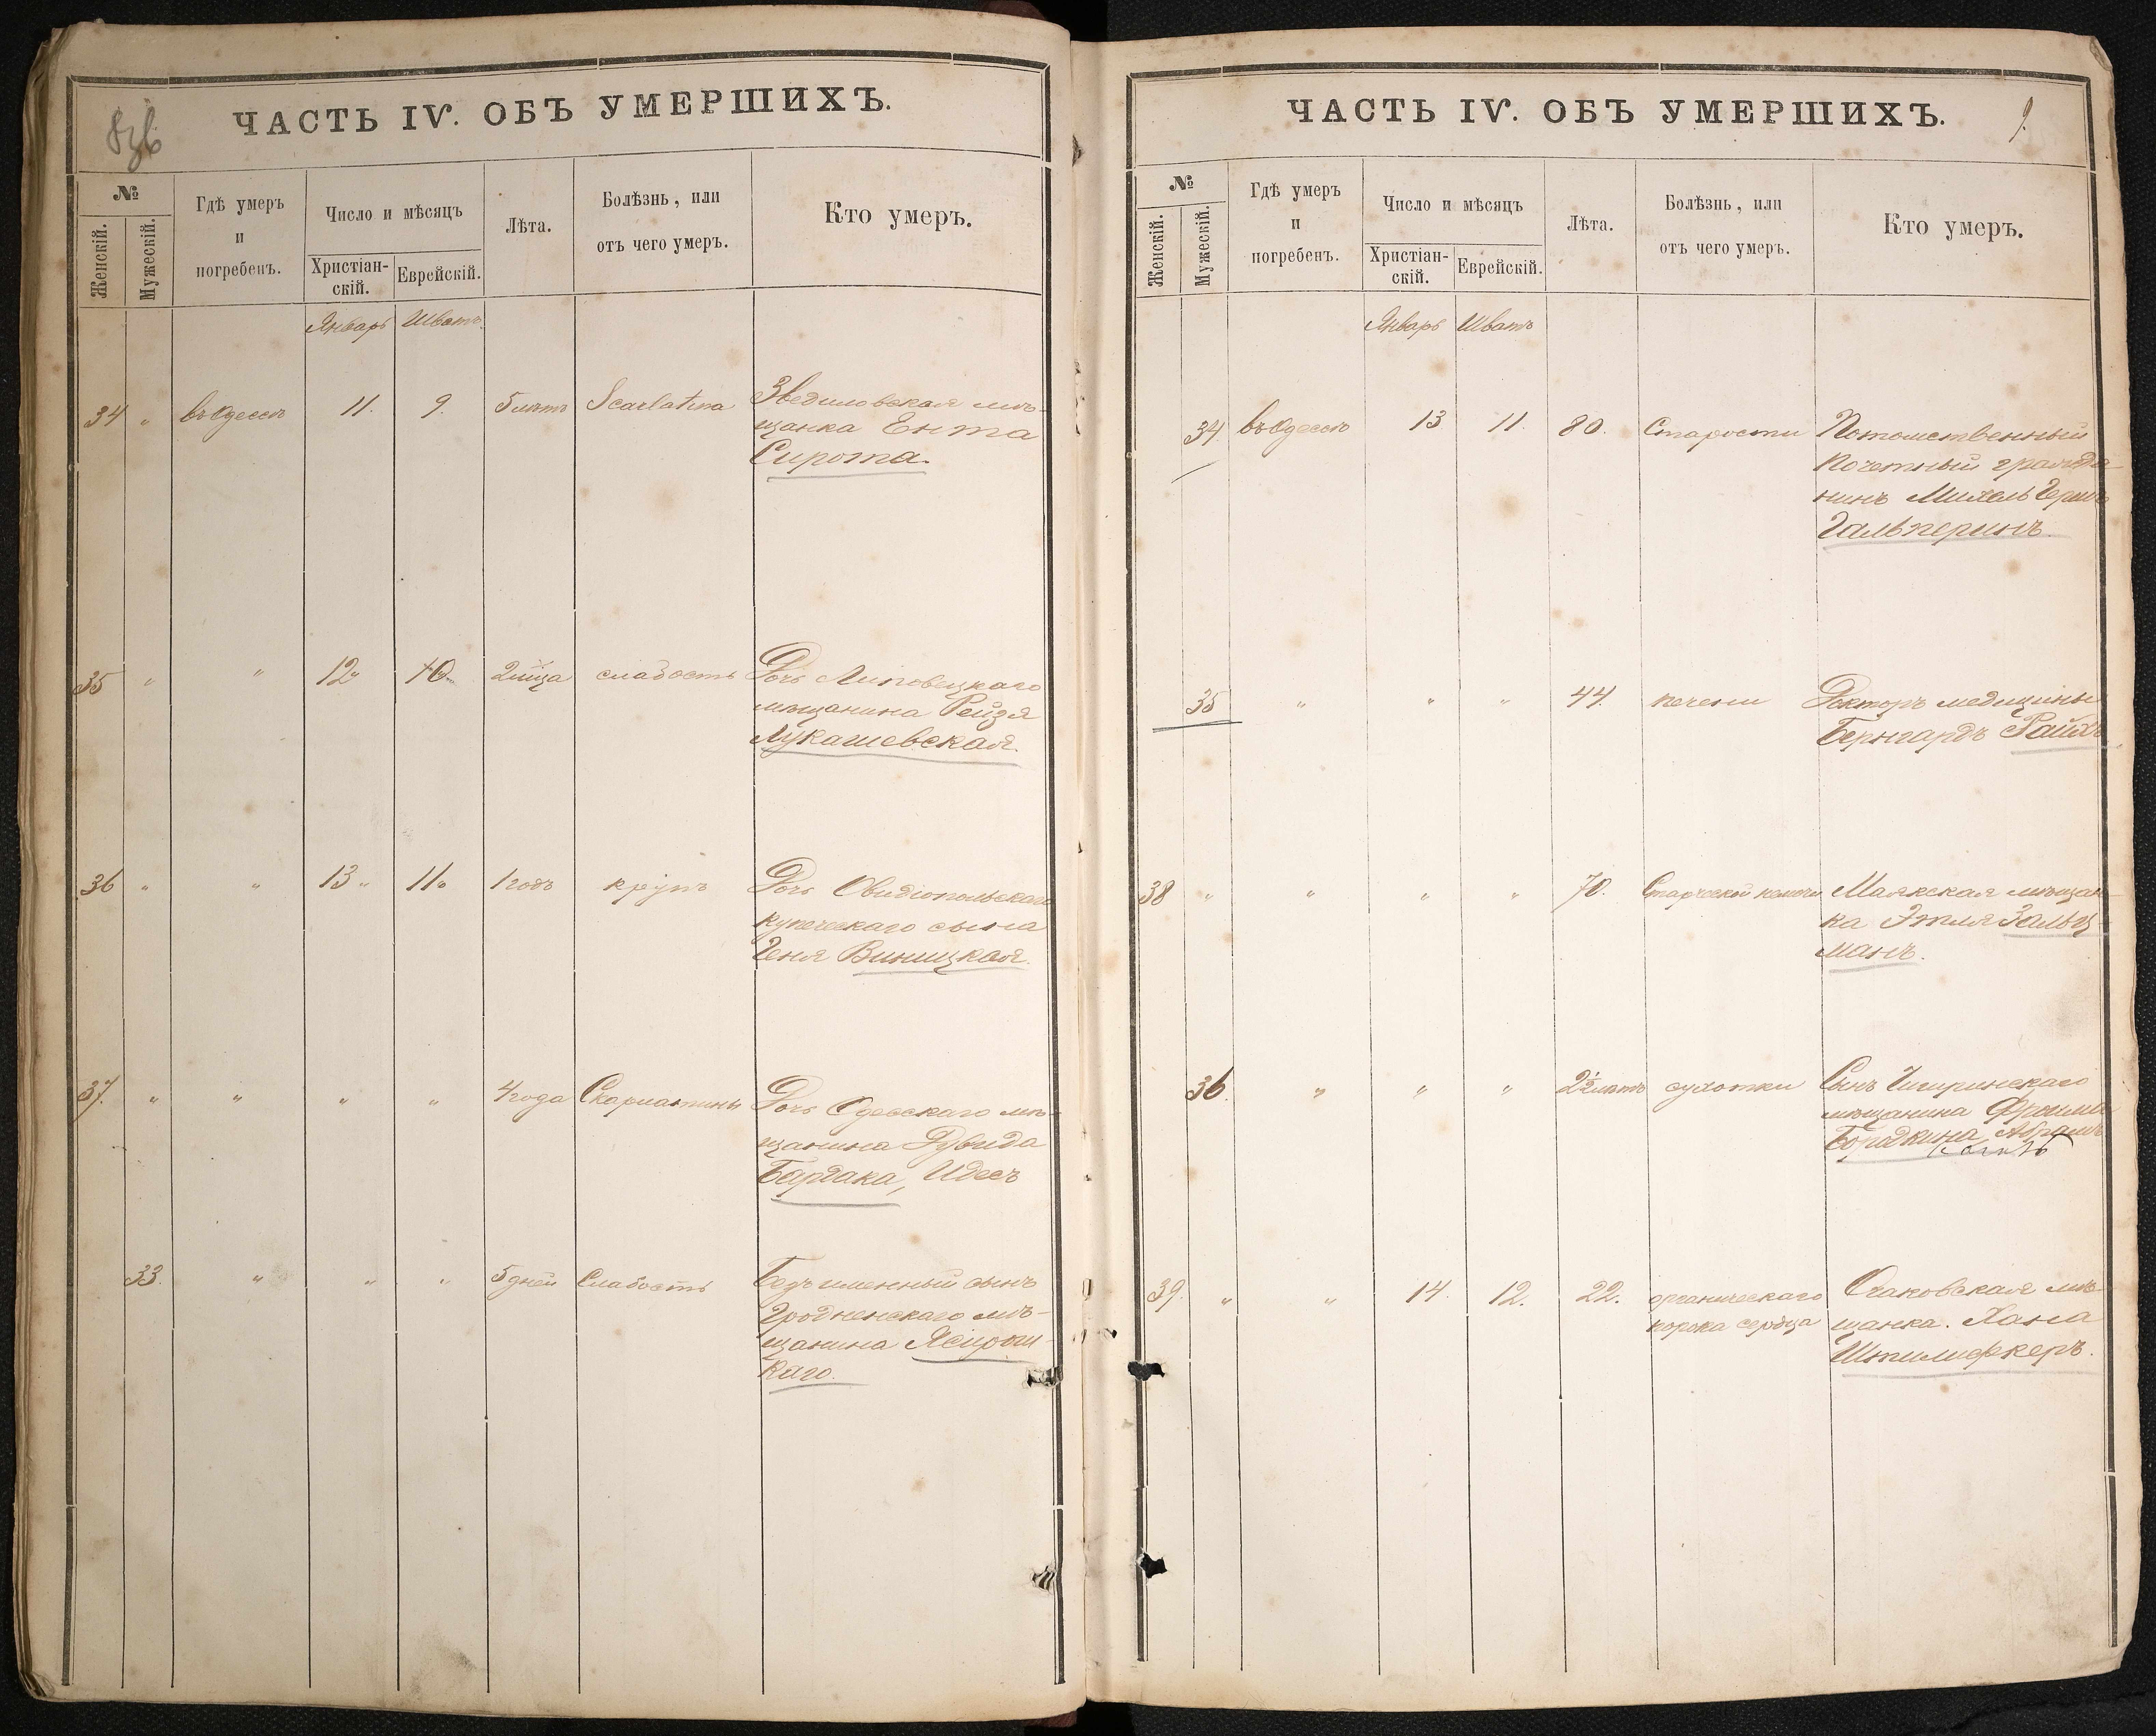 ЧАСТЬ IV. ОБЪ УМЕРШИХЪ.
№
Женскій.
Мужескій.
Гдѣ умеръ
и
погребенъ.
Число и мѣсяцъ
Христіан-
скій.
Еврейскій.
Лѣта.
Болѣзнь, или
отъ чего умеръ.
Кто умеръ.
Январь Шватъ
34 " въ Одессѣ 11. 9. 5 лѣтъ Scarlatina Зведиловская мѣ-
щанка Ента
Сирота.
35 " " 12 10 2 мца слабость Дочь Липовецкаго
мѣщанина Рейзя
Лукашевская.
36 " " 13 " 11 1 годъ крупъ Дочь Овидіопольскаго
купеческаго сына
Геня Виницкая.
37. " " " " 4 года Скарлатины Дочь Одесскаго мѣ-
щанина Дувида
Бардака, Идесъ
33. " " " 5 дней Слабость Безъименный сынъ
Гродненскаго мѣ-
щанина
каго.
ЧАСТЬ IV. ОБЪ УМЕРШИХЪ.
9.
№
Женскій.
Мужескій.
Гдѣ умеръ
и
погребенъ.
Число и мѣсяцъ
Христіан-
скій.
Еврейскій.
Лѣта.
Болѣзнь, или
отъ чего умеръ.
Кто умеръ.
Январь Шватъ
34. въ Одессѣ 13 11. 80. Старости Потомственный
почетный гражда-
нинъ Михель Гершъ
Гальперинъ.
35 " " " 44. печени Докторъ медицины
Бернгардъ Райхъ
38 " " " " 70. Старческой немочи Маякская мѣщан-
ка Этля Зальц-
манъ.
36. " " " 2½ лѣтъ сухотки Сынъ Чигиринскаго
мѣщанина Фроима
Бородкина, Абрамъ
39. " " 14. 12. 22. органическаго Очаковская мѣ-
порока сердца щанка. Хана
Шпилифкеръ.